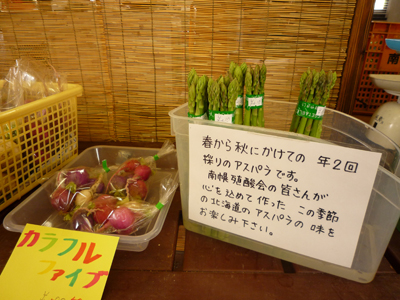 春から秋にかけての 年2回
採りのアスパラです。
南幌殖酸会の皆さんが
心を込めて作った この季節
の北海道のアスパラの 味を
お楽しみ下さい。
カラフル
ファイブ